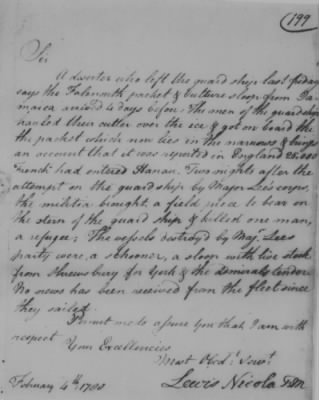 199
Sir
A deserter who left the guard ship last friday
says the Falmouth packet & Vulture sloop from Ja-
maica arrived 4 days before. The men of the guard ship
hauled their cutter over the ice & got on board the
the packet which now lies in the narrows & brings
an account that it was reported in England 25,000
French had entered Hanau. Two nights after the
attempt on the guard ship by Major Lee's corps,
the militia brought a field piece to bear on
the stern of the guard ship & killed one man,
a refugee; The vessels destroyed by Maj. Lees
party were, a schooner, a sloop with live stock
from Shrewsbury for York & the admirals tender
No news has been received from the fleet since
they sailed.
Permit me to assure you that I am with
respect
Your Excellencies
Most Obedt. Servt.
Lewis Nicola
February 4th. 1780